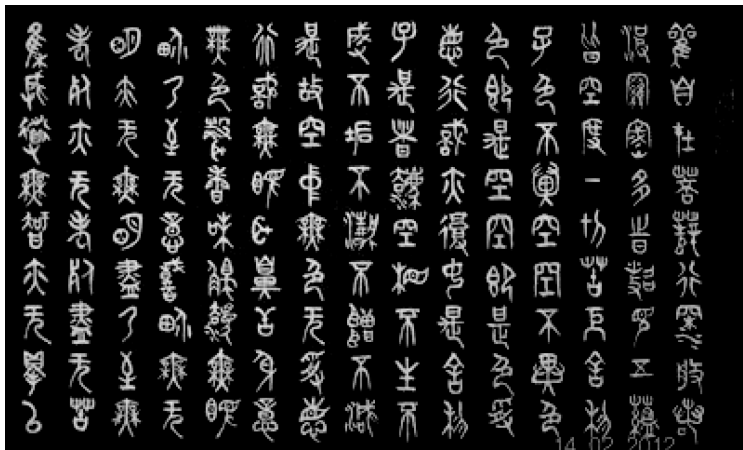 觀自在菩薩行深般若
波羅蜜多時照見五蘊
皆空度一切苦厄舍利
子色不異空空不異色
色即是空空即是色受
想行識亦復如是舍利
子是諸法空相不生不
滅不垢不淨不增不減
是故空中無色无受想
行識無眼耳鼻舌身意
無色聲香味觸法無眼
界乃至无意識界無无
明亦无無明盡乃至無
老死亦无老死盡无苦
集滅道無智亦无得以
14.02.2012